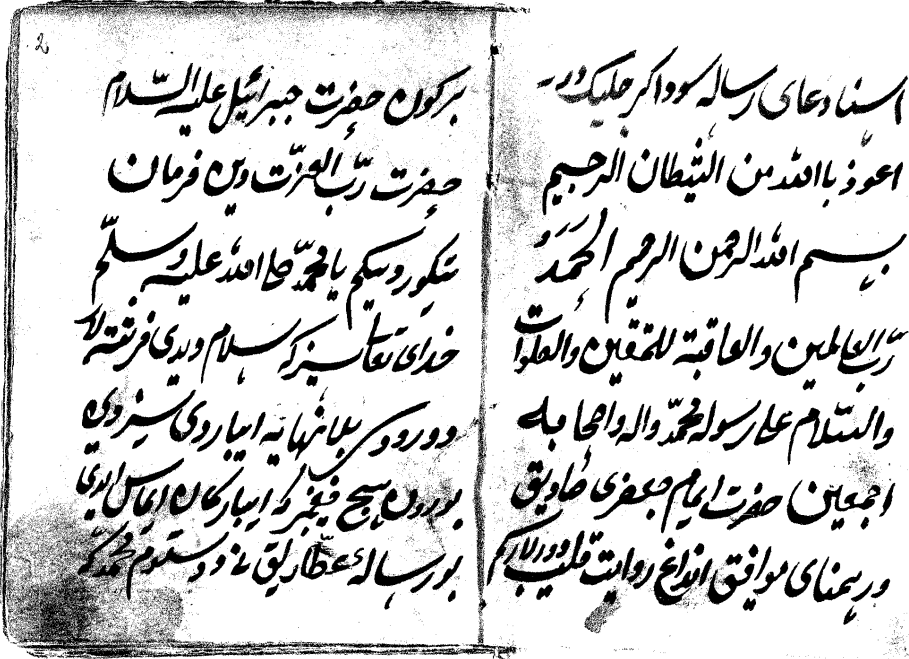 اسناد دعای رساله سوداکر جلیک دور
اعوذ باالله من الشیطان الرجیم
بسم الله الرحمن الرحیم الحمد
رب العالمین والعاقبة للمتقین والصلوات
والسلام علی رسوله محمد واله واصحابه
اجمعین حضرت ایمام جعفری صادیق
ورهنمای موافیق انداغ روایت قلیب دورلارکم
برکون حضرت جبرائیل علیه السلام
حضرت رب العزت دین فرمان
یتکوروبکیم یا محمد صلی الله علیه وسلم
خدای تعالی سیزکه سلام ویدی فرشته لار
دورودی بلانهایه ایباردی سیزدین
بورون هیچ فیغمبرکه ایبارکان ایماس ایدی
بو رسالهٔ عطارلیق نی دوستوم محمدکه